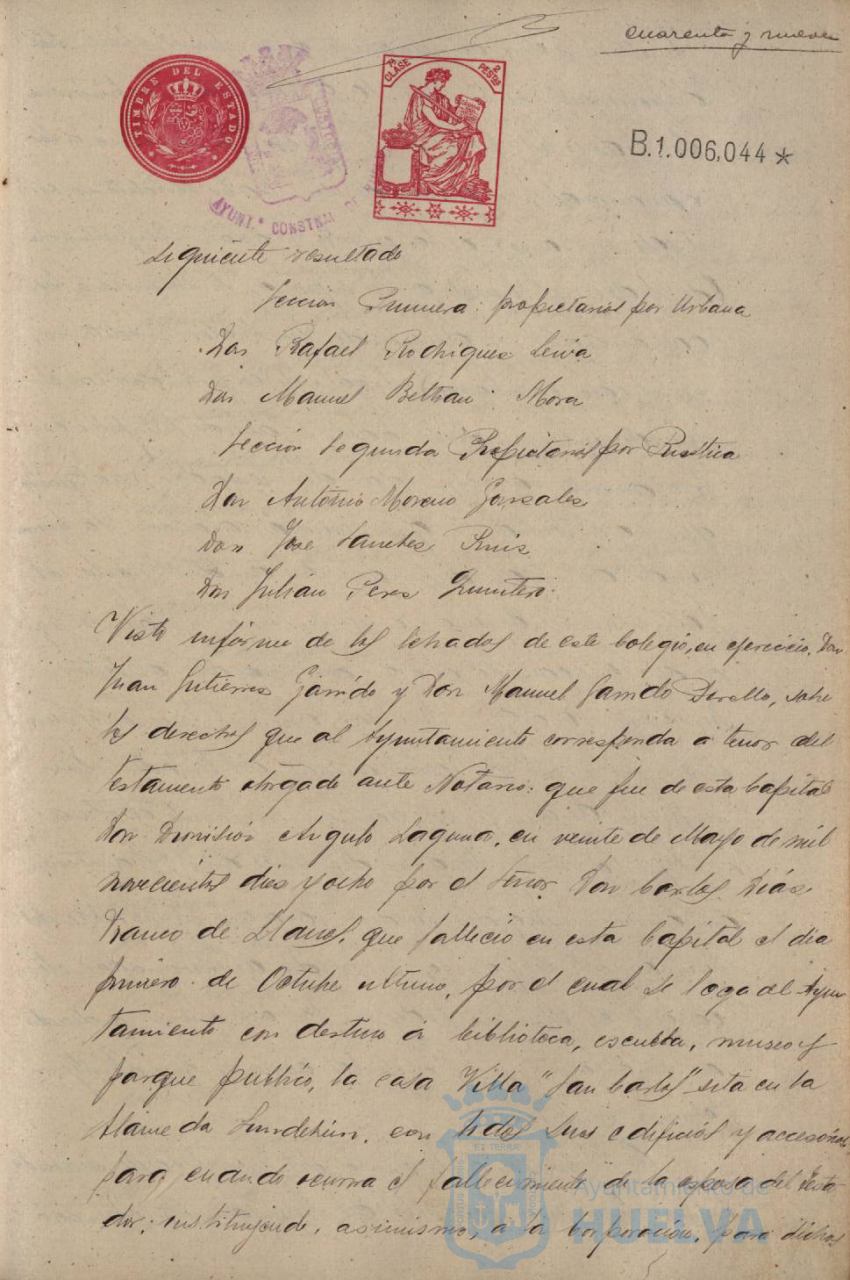 cuarenta y nueve
TIMBRE DEL ESTADO
7ª CLASE
2 PESTAS
B.1.006,044 *
AYUNT.º CONSTNAL DE
siguiente resultado
Sección Primera: propietarios por Urbana
Don Rafael Rodriguez Leiva
Don Manuel Beltran Mora
Sección Segunda Propietarios por Rustica
Don Antonio Moreno Gonzales
Don Jose Sanches Ruiz
Don Julián Peres Quintero.
Visto informe de los letrados de este Colegio, en ejercicio, Don
Juan Gutierres Garrido y Don Manuel Garrido Perello, sobre
los derechos que al Ayuntamiento corresponda á tenor del
testamento otorgado ante Notario: que fue de esta Capital
Don Dionisio Angulo Laguna, en veinte de Mayo de mil
novecientos dies y ocho por el Señor Don Carlos Diás
Franco de Llanos, que falleció en esta Capital el dia
primero de Octubre ultimo, por el cual se lega al Ayun
tamiento con destino á biblioteca, escuela, museo y
parque publico, la casa Villa "San Carlos" sita en la
Alameda Sundehin, con todos sus edificios y accesorios
para cuando ocurra el fallecimiento de la esposa del testa
dor; instituyendo, asimismo, a la Corporación, para dichos
Ayuntamiento de
HUELVA